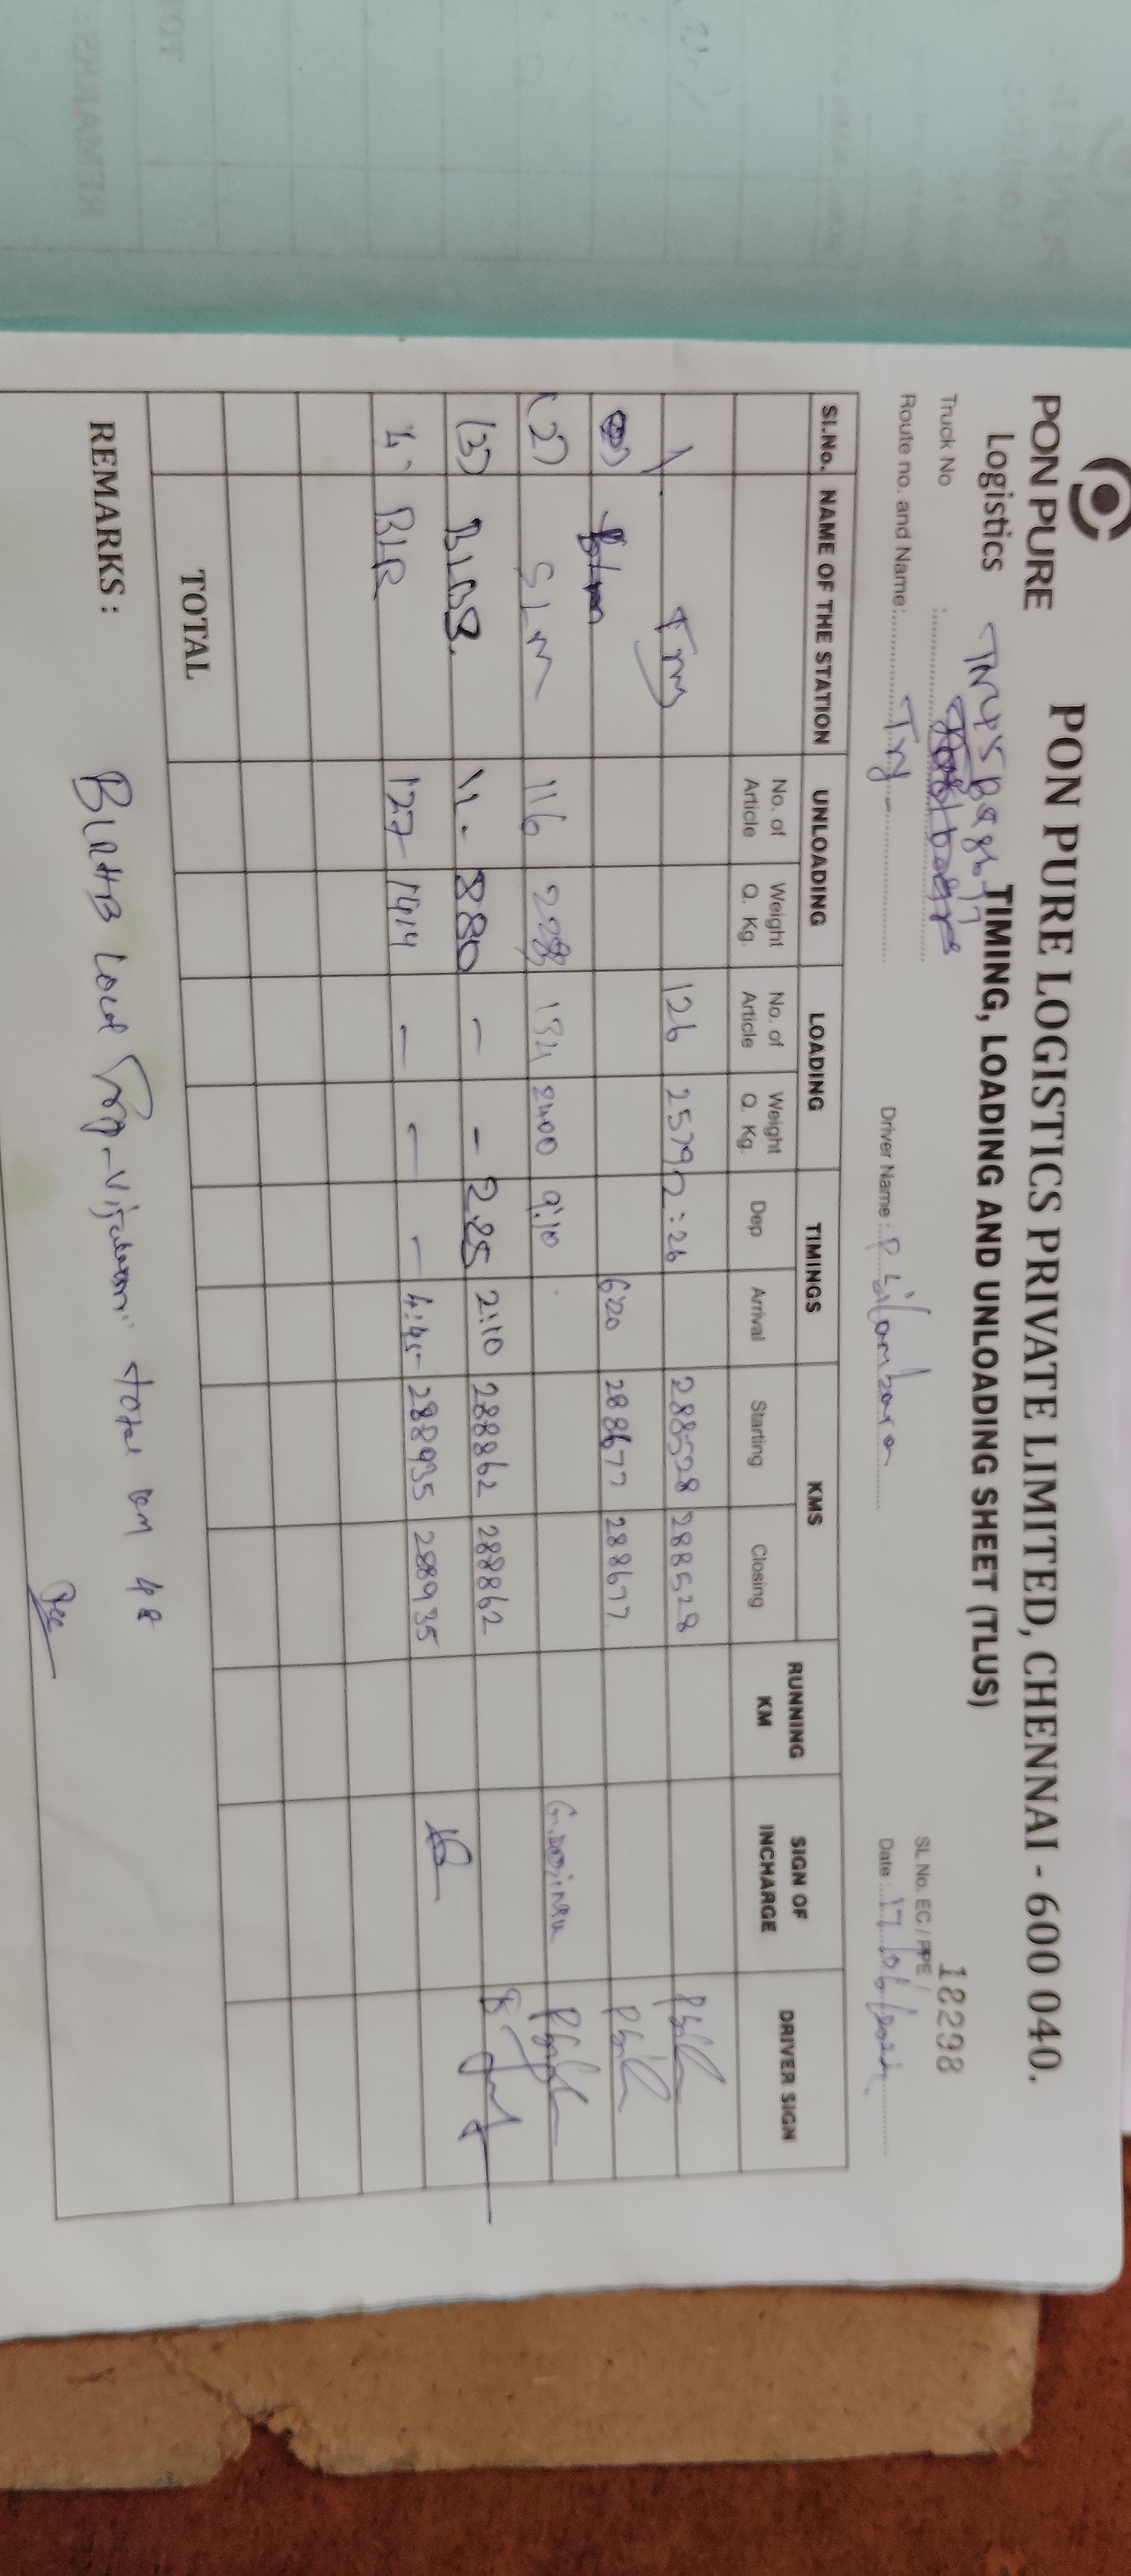 PON PURE
Logistics
PON PURE LOGISTICS PRIVATE LIMITED, CHENNAI - 600 040.
TIMING, LOADING AND UNLOADING SHEET (TLUS)
18298
Truck No :
SL No. EC / PPE /
Route no. and Name: Try - Driver Name : Date : 17/06/
Sl.No. NAME OF THE STATION UNLOADING LOADING TIMINGS KMS RUNNING KM SIGN OF INCHARGE DRIVER SIGN
No. of Article Weight Q. Kg. No. of Article Weight Q. Kg. Dep Arrival Starting Closing
1 Try 126 2579 2:26 288528 288528
6:20 288677 288677
(2) SLM 116 134 2400 9:10
(3) 11. 880 - - 2.25 2:10 288862 288862
4. BLR 127 1414 - - - 4:45 288935 288935
TOTAL
REMARKS : BLRHB Local total km 48